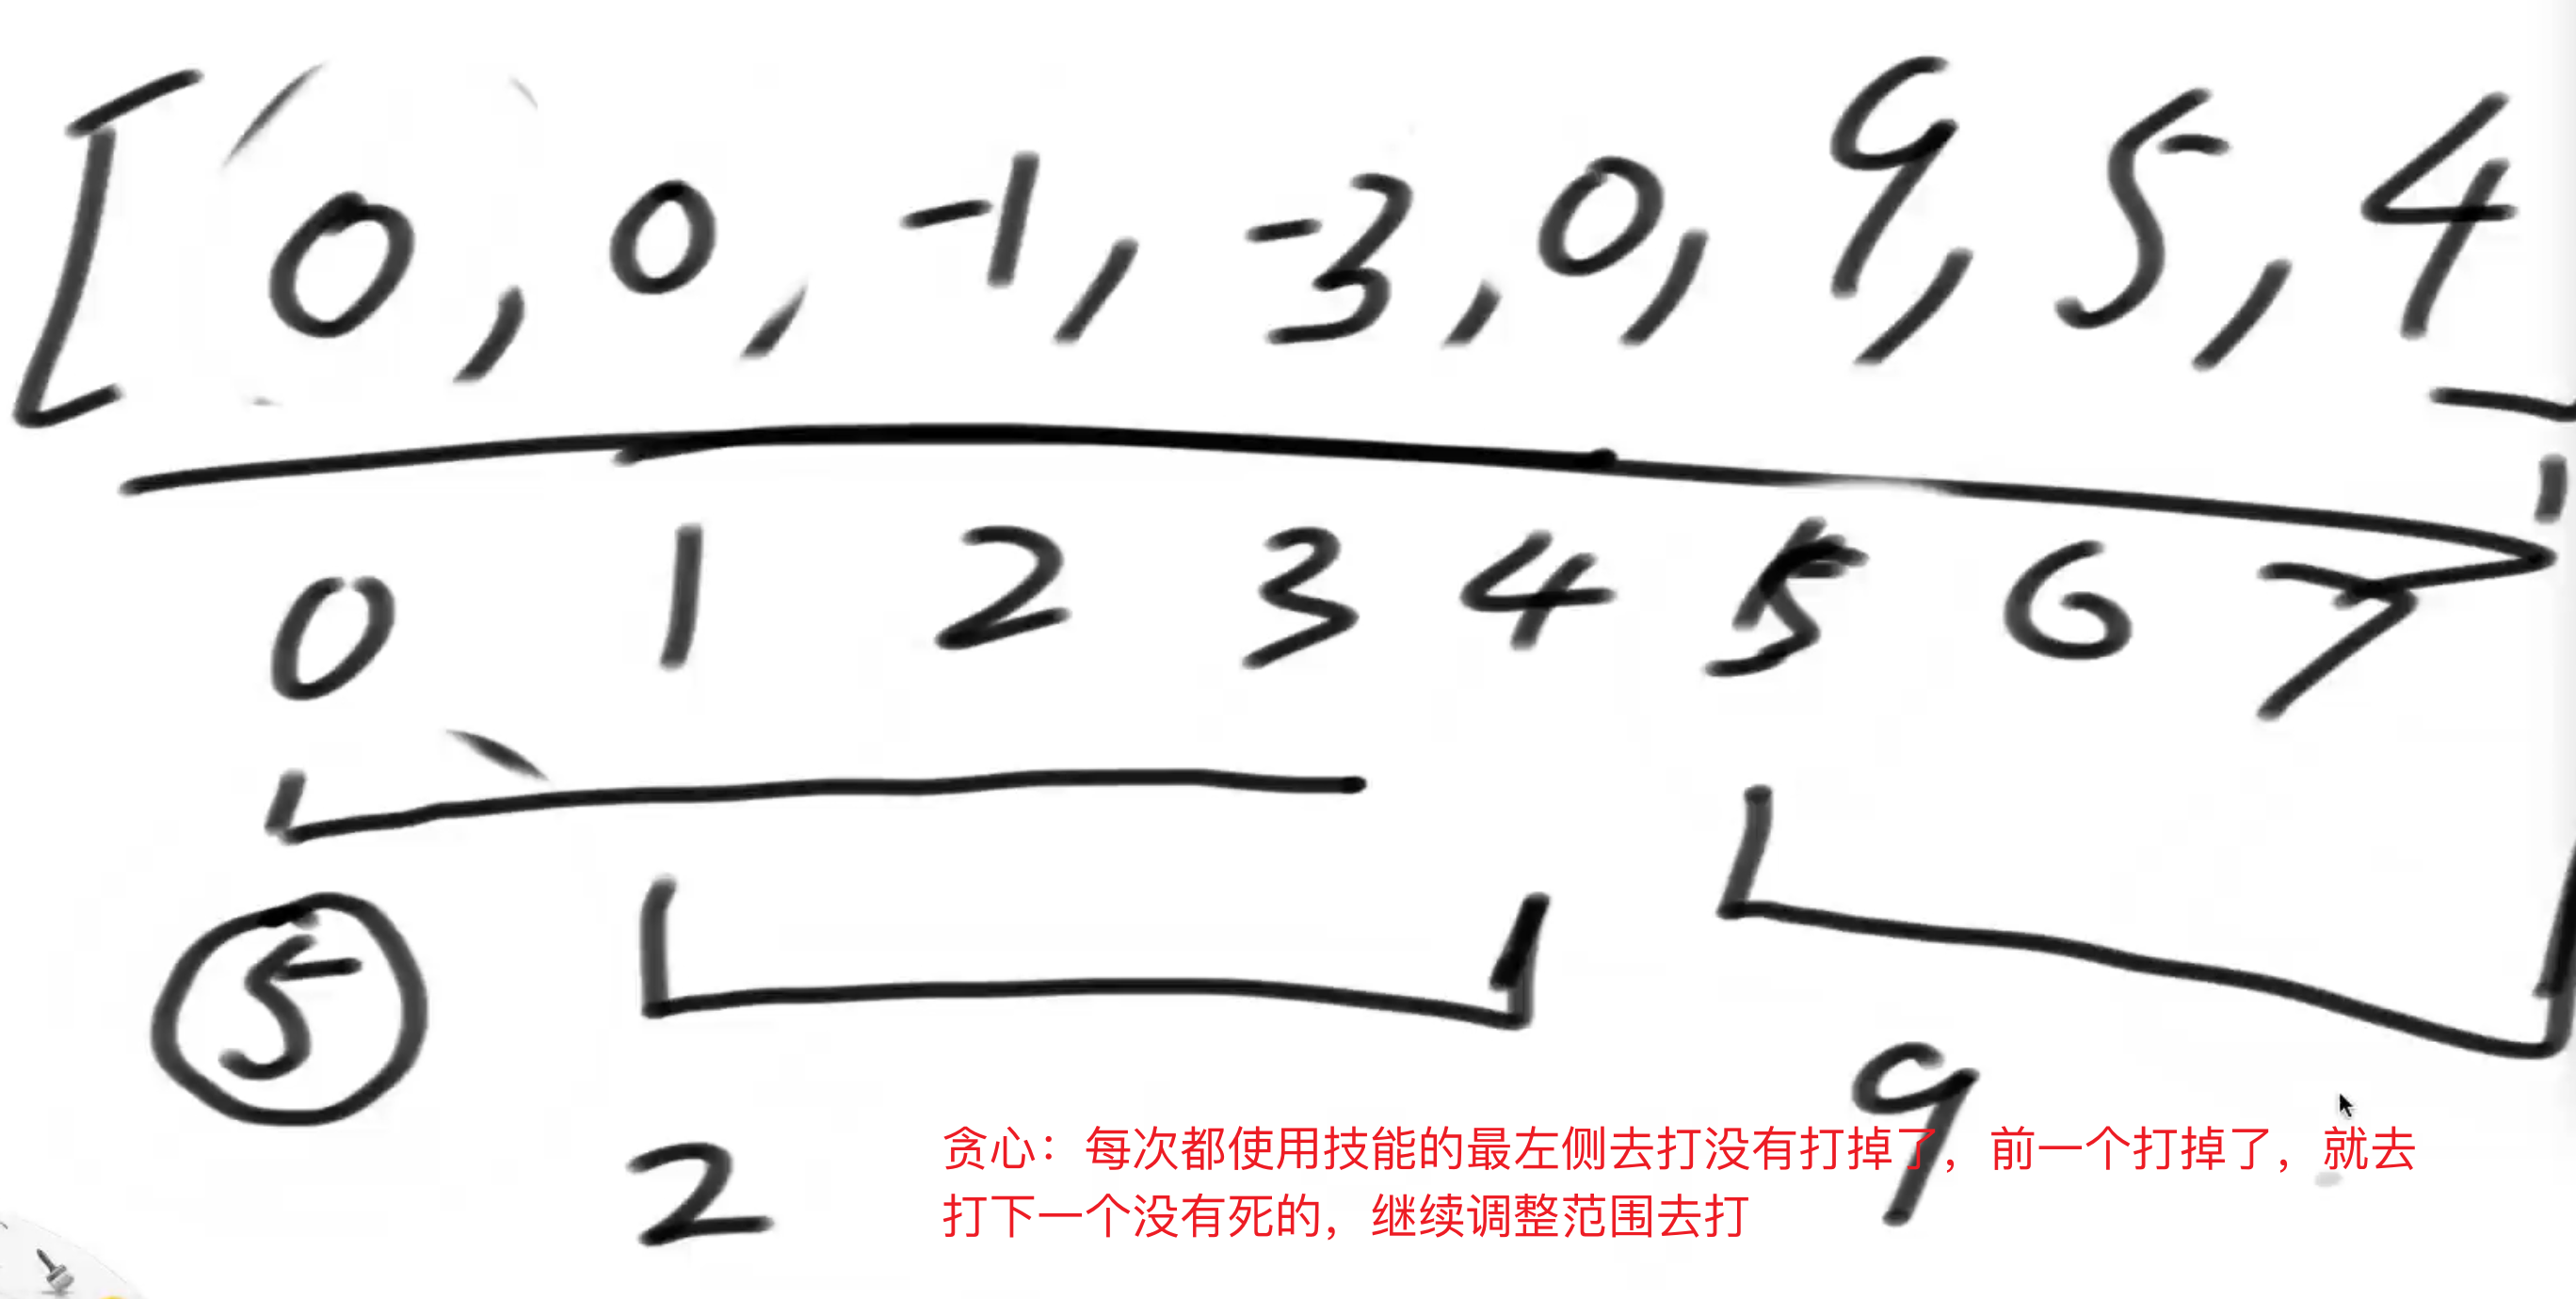 [0,0,-1,-3,0,9,5,4]
0 1 2 3 4 5 6 7
5
2
9
贪心：每次都使用技能的最左侧去打没有打掉了，前一个打掉了，就去
打下一个没有死的，继续调整范围去打